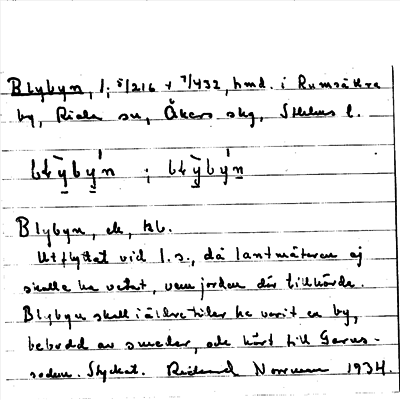 Blybyn, l; 5/216 + 7/432, hmd. i Rumsäkra
by, Riala sn, Åkers skg, Sthlms l.
Blybyn, ek, kb.
Utflyttat vid l.s., då lantmätaren ej
skulle ha vetat, vem jorden där tillhörde.
Blybyn skall i äldre tider ha varit en by,
bebodd av smeder, och hört till
Styckat. Rickard Norrman 1934.